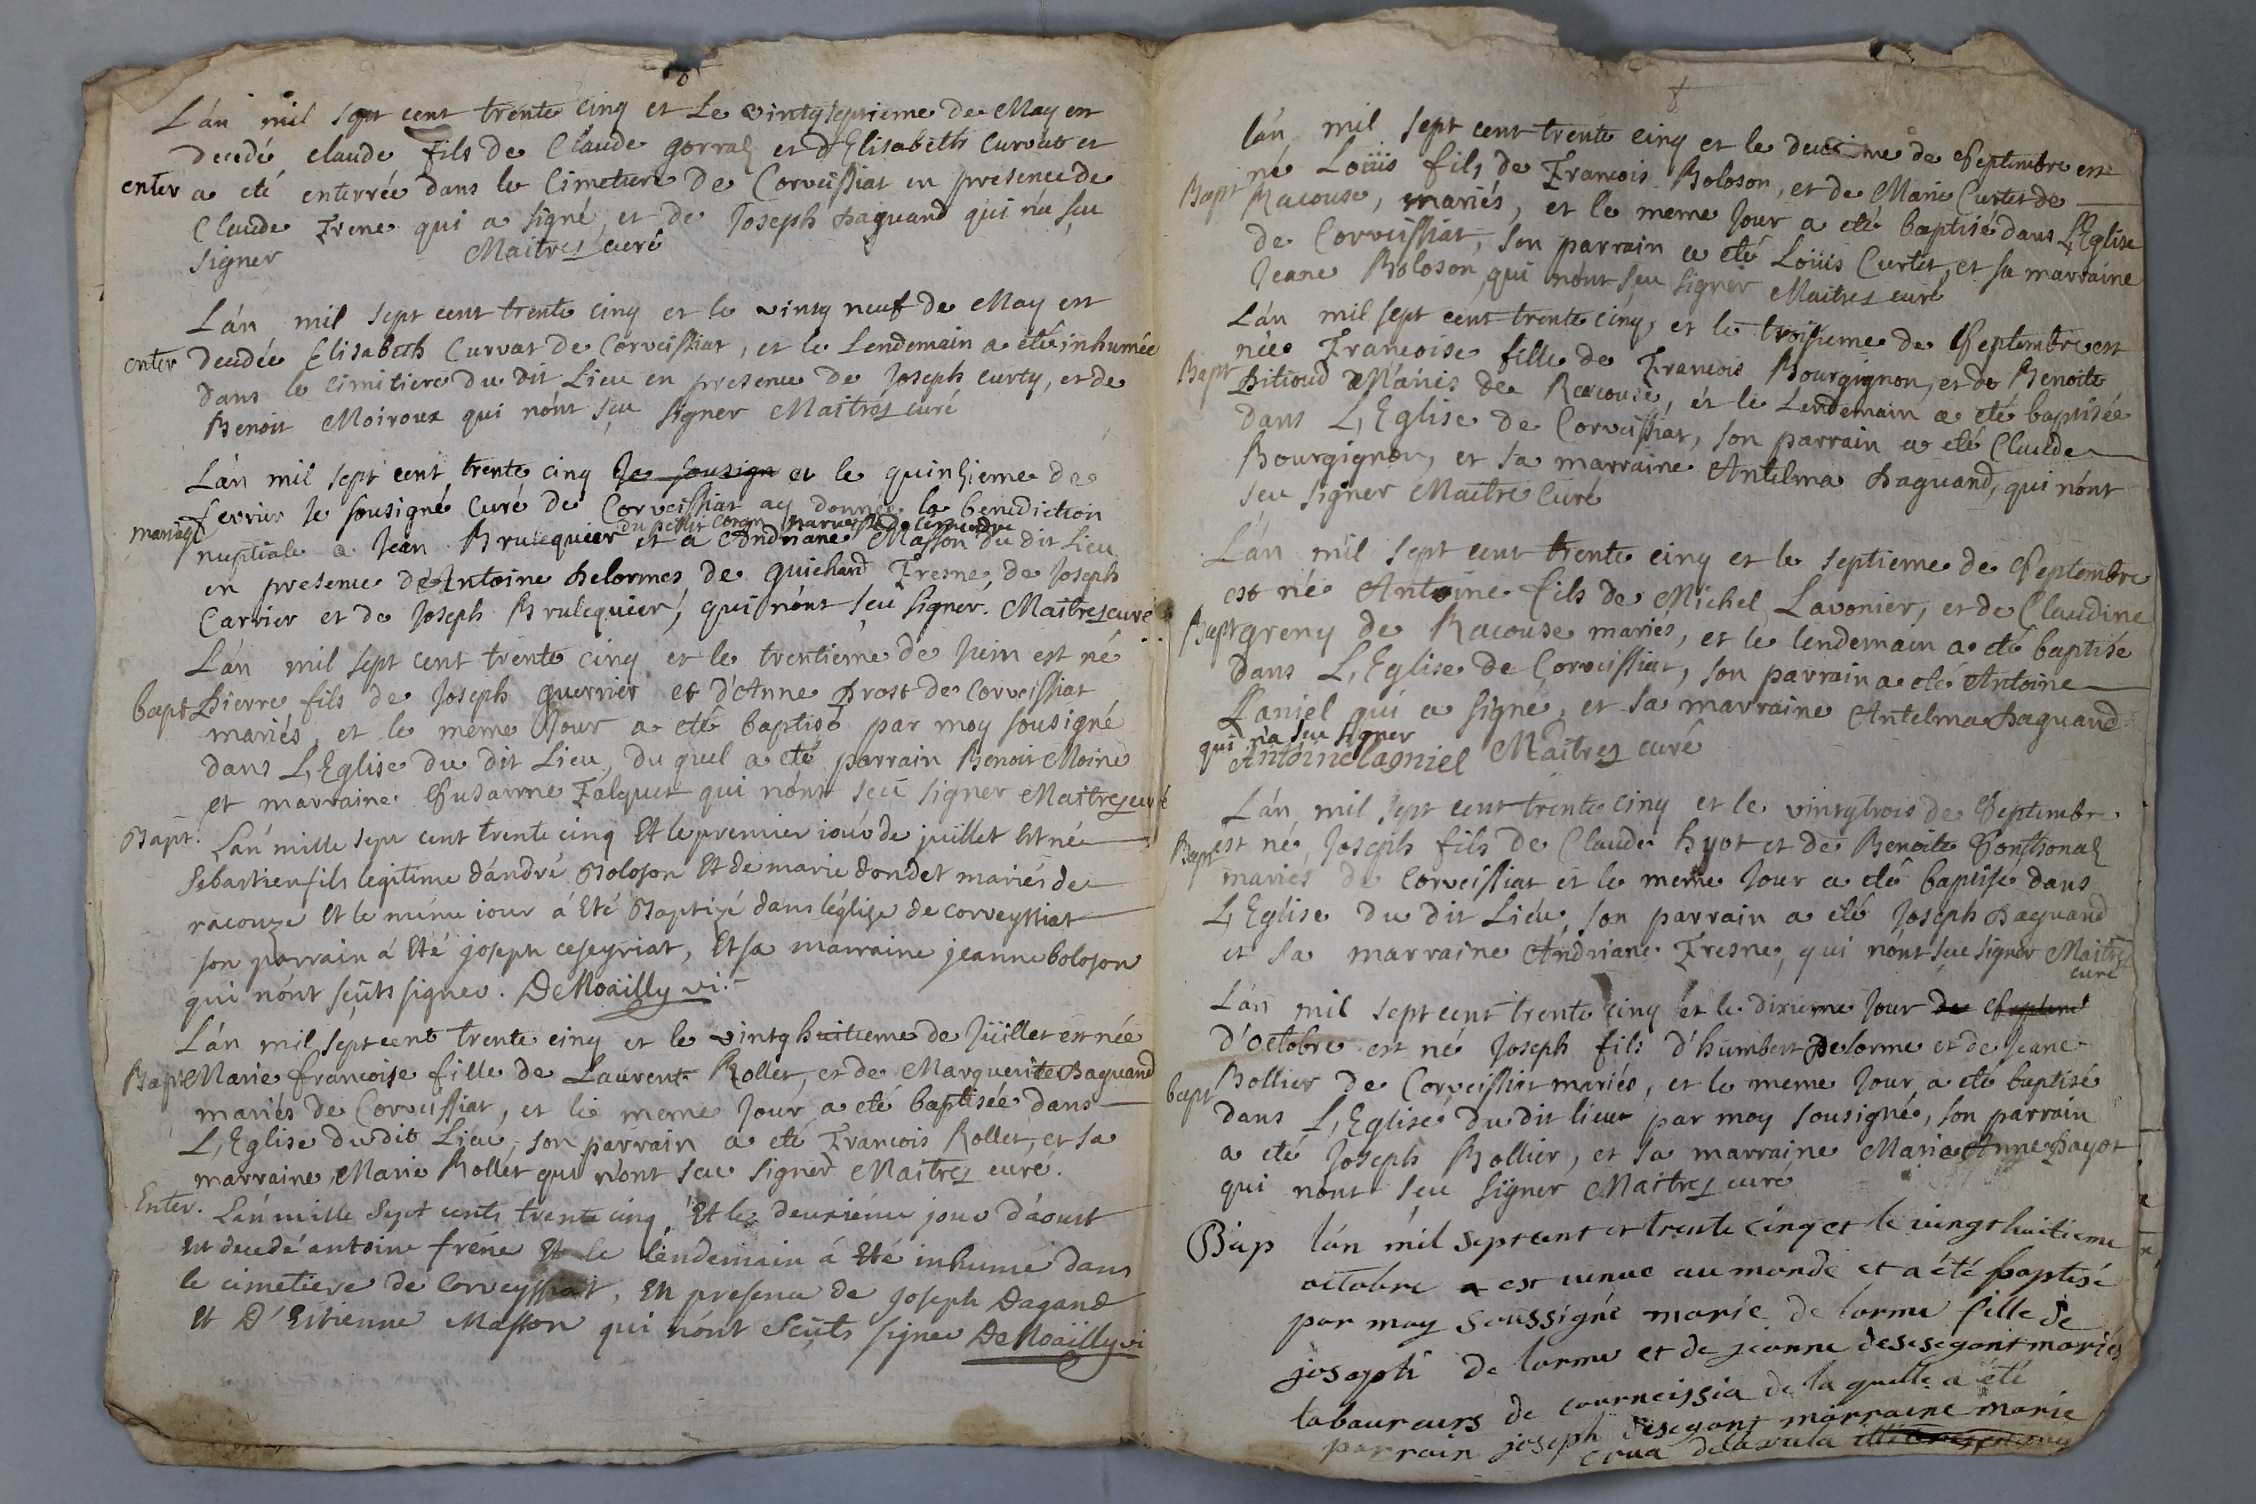 L'án mil sept cent trente cinq et Le vintgseptieme de May est
decedé claude fils de Claude gorraz et d'Elisabeth Curvat et
enter a eté enterrée dans le Cimetiere de Corveissiat en presence de
Claude Frene qui a signé et de Joseph Daguand qui n'a sçu
signer Maitrez curé
L'án mil sept cent trente cinq et le vintg neuf de May est
enter decedée Elisabeth Curvat de Corveissiat, et le Lendemain a eté inhumée
dans le cimitiere du dit Lieu en presence de Joseph curty, et de
Benoit Moiroux qui nónt sçu signer Maitrez curé
L'án mil sept cent trente cinq Je sousign et le quinzieme de
fevrier Je sousigné Curé de Corveissiat ay donnée la benediction
du petit Coron
mariage nuptiale a Jean Brulequier et a Andriane Masson du dit Lieu
en presence de Antoine Delormes de guichard Fresne, de Joseph
Carrier et de Joseph Brulequier, qui nónt sçu signer. Maitrez curé
L'án mil sept cent trente cinq et le trentieme de Juin est né
bapt Pierre fils de Joseph guerrier et d'Anne Prost de Corveissiat
mariés, et le meme Jour a eté baptisé par moy sousigné
dans L'Eglise du dit Lieu, du quel a eté parrain Benoit Moine
et marraine Susanne Falquet qui nónt sçu signer Maitrez curé
Bapt. L'án mille sept cent trente cinq Et le premier iour de juillet Est né
Sebastien fils legitime d'andré Boloson Et de marie dondet mariés de
racouze Et le même iour á Eté Baptizé dans léglize de corveyssiat
son parrain á Eté joseph ceseyriat, Et sa marraine jeanne boloson
qui nónt sçûts signer. De Noailly vi.
L'án mil sept cent trente cinq et le vintghuitieme de Juillet est née
Bapt Marie francoise fille de Laurent Rollet, et de Marguerite Daguand
mariés de Corveissiat, et le meme Jour a eté baptisée dans
L'Eglise du dit Lieu, son parrain a eté Francois Rollet, et sa
marraine Marie Rollet qui nónt sçu signer Maitrez curé.
Enter. L'án mille Sept cents trente cinq, Et le deuxiéme jour d'áoust
Est decedé antoine fréne Et le lendemain á Eté inhumé dans
le cimetiere de Corveyssiat, En presence de joseph Dagand
Et D'Estienne Masson qui nónt Sçûts signer De Noailly vi
lán mil sept cent trente cinq et le deuxieme de Septembre est
né Loüis fils de Francois Boloson, et de Marie Curtet de
Bapt Racouse, mariés, et le meme Jour a eté baptisé dans L'Eglise
de Corveissiat, son parrain a eté Loüis Curtet, et sa marraine
Jeane Boloson, qui nónt sçu signer Maitrez curé
L'án mil sept cent trente cinq, et le troisieme de Septembre est
née Francoise fille de Francois Bourgignon, et de Benoite
Bapt Pitioud Mariés de Racouse, et le Lendemain a eté baptisée
dans L'Eglise de Corveissiat, son parrain a eté Claude
Bourgignon, et sa marraine Antelma Daguand, qui nónt
sçu signer Maitre Curé
L'án mil sept cent trente cinq et le septieme de Septembre
est né Antoine fils de Michel Lavonier, et de Claudine
Bapt greny de Racouse mariés, et le lendemain a eté baptisé
dans L'Eglise de Corveissiat, son parrain a eté Antoine
Laniel qui a signé, et sa marraine Antelma Daguand
qui n'a sçu signer
Antoine lagniel Maitrez curé
L'án mil sept cent trente cinq et le vintgtrois de Septembre
Bapt est né Joseph fils de Claude hyot et de Benoite Ponsthonaz
mariés de Corveissiat et le meme Jour a eté baptise dans
L'Eglise du dit Lieu, son parrain a eté Joseph Daguand
et sa marraine Andriane Fresne, qui nónt sçu signer Maitrez
curé
L'án mil sept cent trente cinq et le dixieme Jour de Septemb
d'octobre est né Joseph fils d'humbert Delorme et de Jeane
bapt Bollier de Corveissiat mariés, et le meme Jour a eté baptisé
dans L'Eglise du dit lieu par moy sousigné, son parrain
a eté Joseph Bollier, et sa marraine Marie Anne Payot
qui nónt sçu signer Maitrez curé
Bap lán mil sept cent et trente cinq et le vingt huitieme
octobre est venue au monde et a été baptisé
par moy soussigné marie de lorme fille de
joseph de lorme et de jeanne desesegont mariés
laboureurs de courneissia de la quelle a été
parrain joseph desegont marraine marie